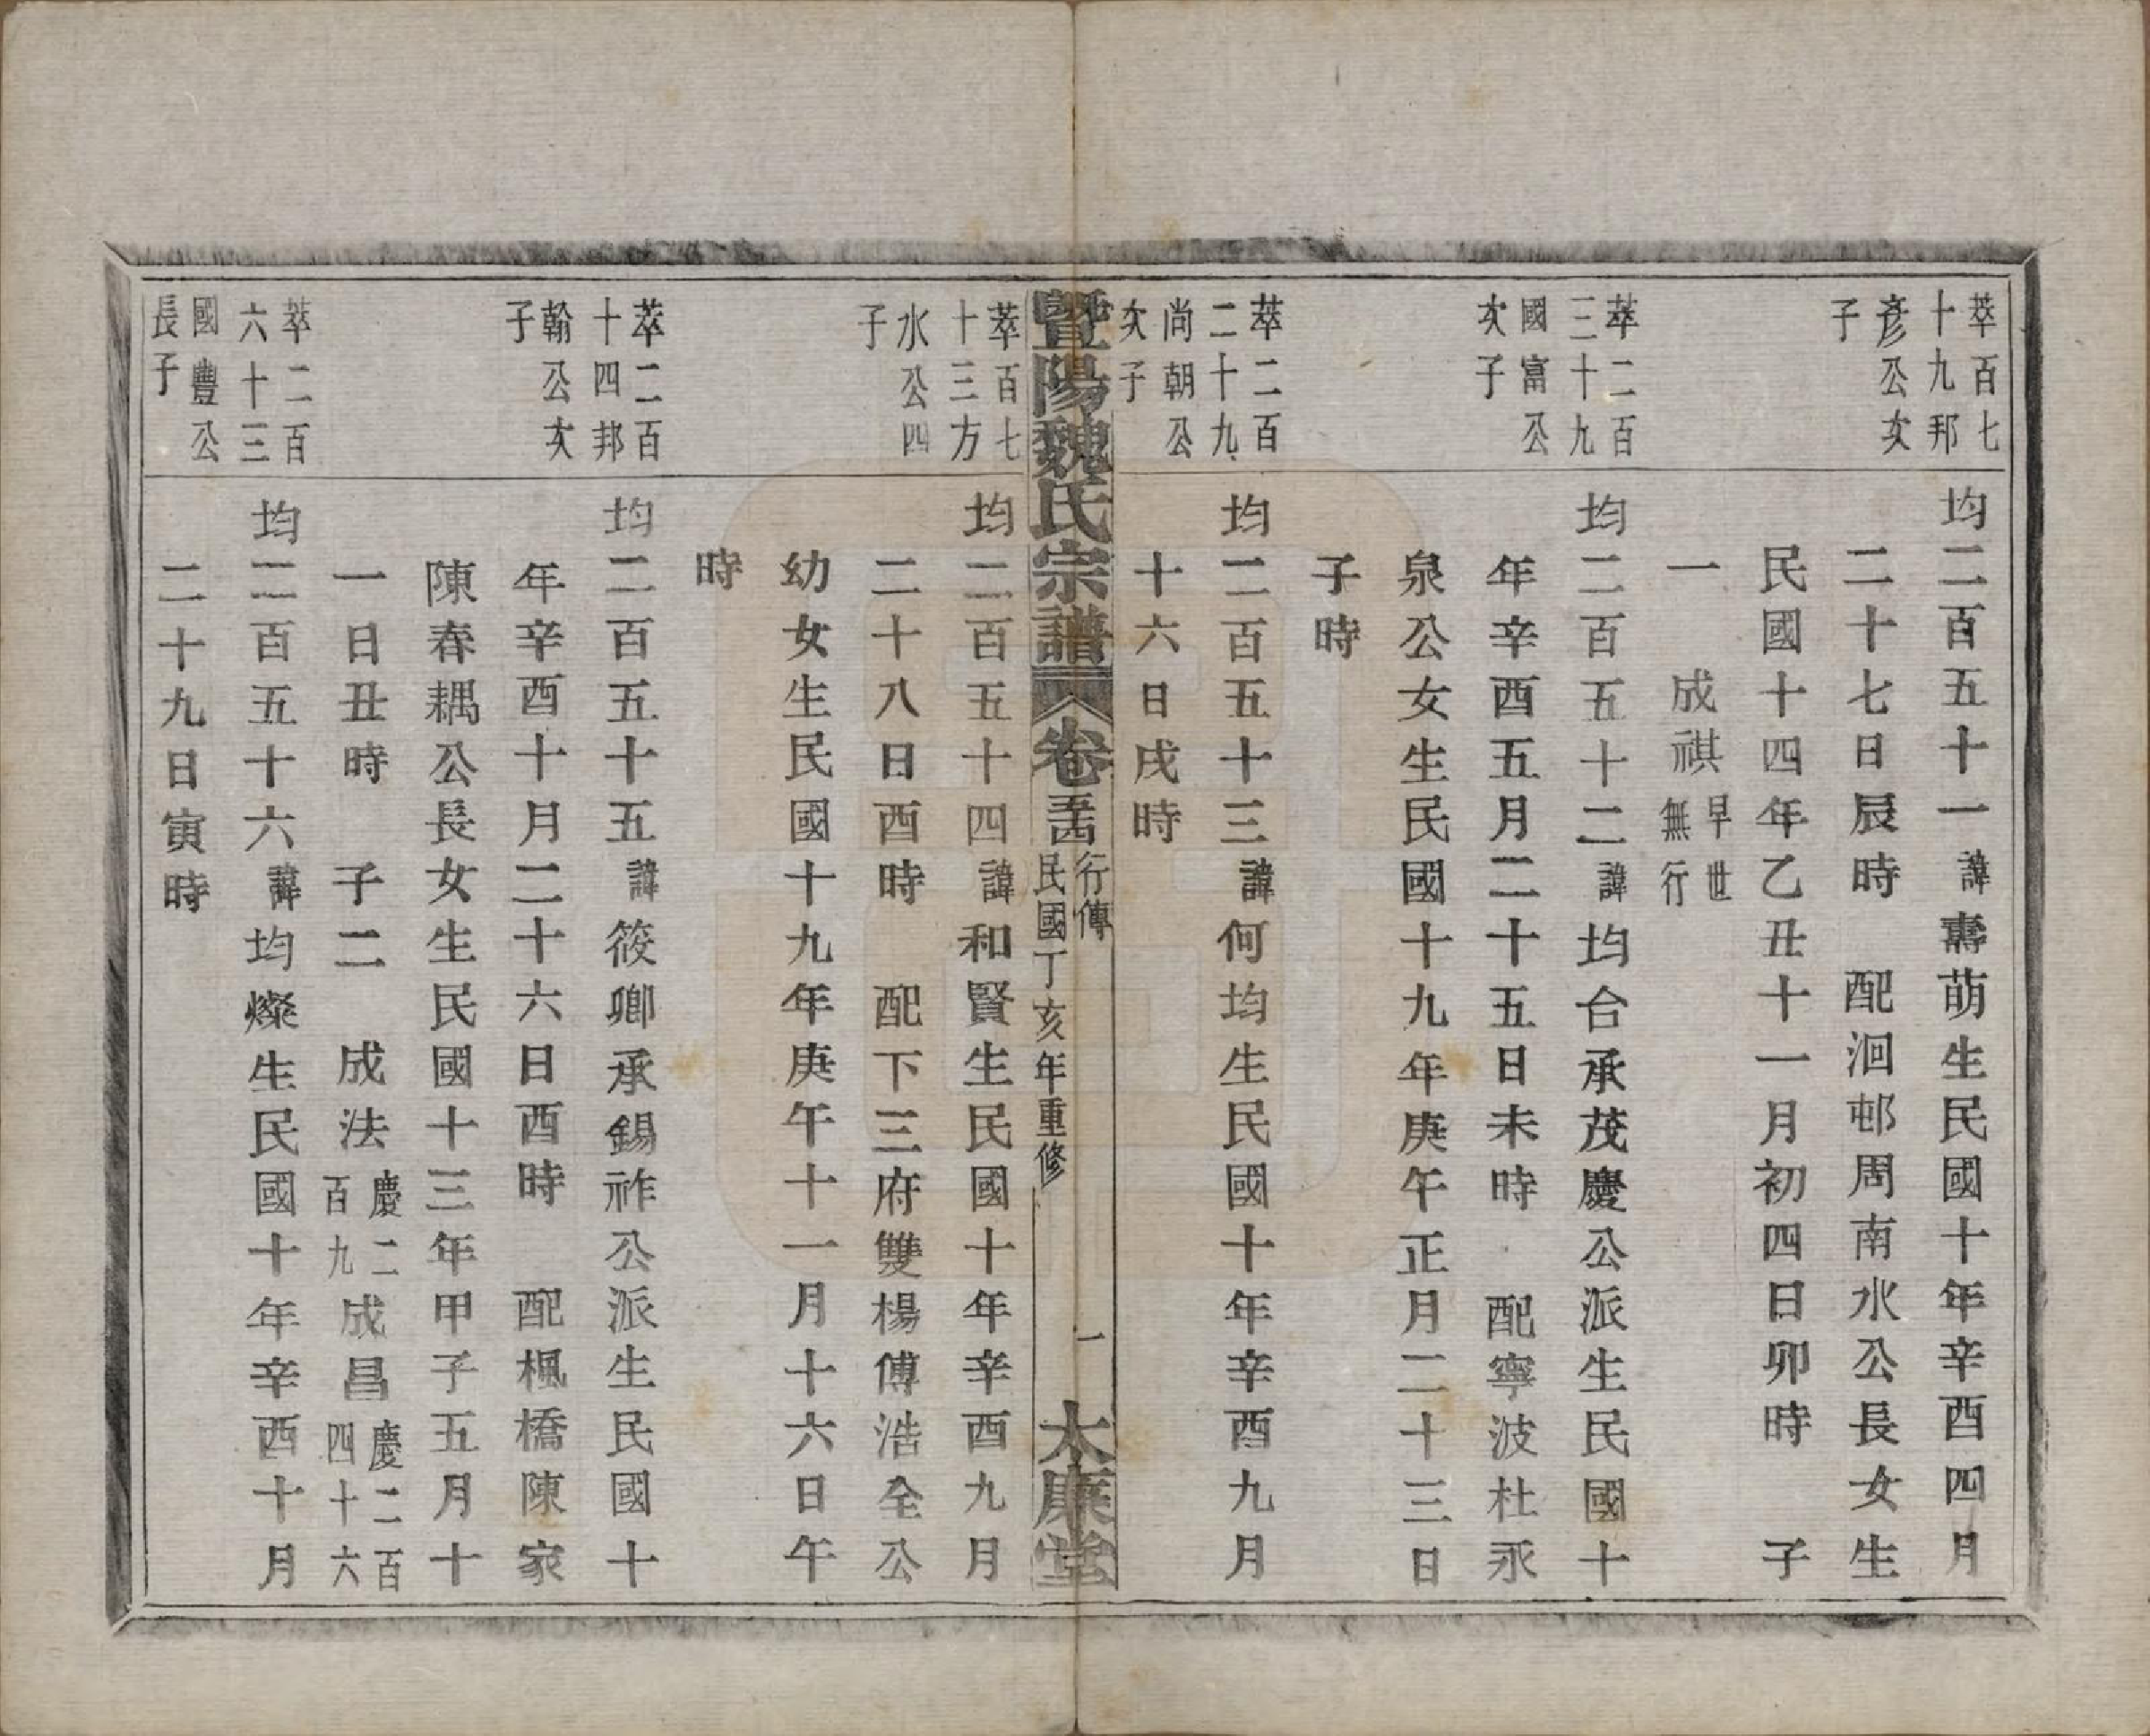 萃百七
十九邦
彥公次
子
均二百五十一諱壽萌生民國十年辛酉四月
二十七日辰時　配洄邨周南水公長女生
民國十四年乙丑十一月初四日卯時　子
一　成祺早世無行
萃二百
三十九
國富公
次子
均二百五十二諱均台承茂慶公派生民國十
年辛酉五月二十五日未時　配寧波杜永
泉公女生民國十九年庚午正月二十三日
子時
萃二百
二十九
尚朝公
次子
均二百五十三諱何均生民國十年辛酉九月
十六日戌時
暨陽魏氏宗譜　卷五十四　行傳　民國丁亥年重修　一　太廉堂
萃百七
十三方
水公四
子
均二百五十四諱和賢生民國十年辛酉九月
二十八日酉時　配下三府雙楊傅浩全公
幼女生民國十九年庚午十一月十六日午
時
萃二百
十四邦
翰公次
子
均二百五十五諱筱卿承錫祚公派生民國十
年辛酉十月二十六日酉時　配楓橋陳家
陳春耦公長女生民國十三年甲子五月十
一日丑時　子二　成法慶二百九成昌慶二百四十六
萃二百
六十三
國豐公
長子
均二百五十六諱均燦生民國十年辛酉十月
二十九日寅時